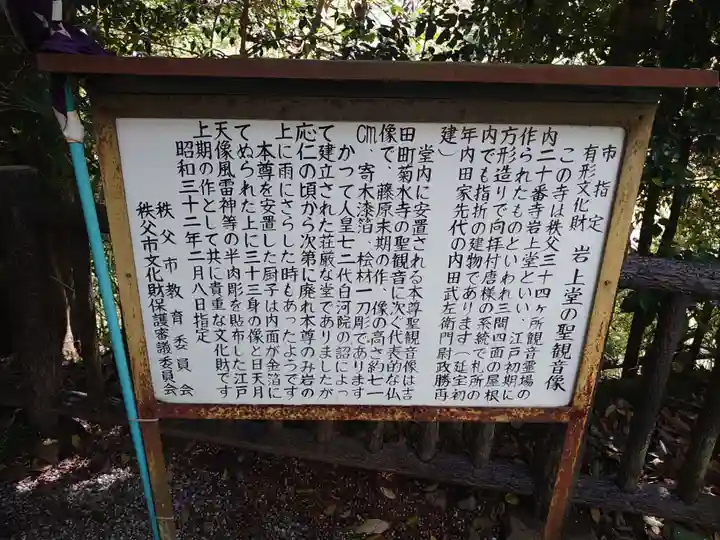 市指定
有形文化財 岩上堂の聖観音像
この寺は秩父三十四ヶ所観音霊場の
内二十番寺岩上堂といい、江戸初期に
作られたものといわれ三間四面の屋根
方形造りで向拝付唐様の系統で札所の
内でも指折の建物であります(延宝初
年内田家先代の内田武左衛門尉政勝再
建)
堂内に安置される本尊聖観音像は吉
田町菊水寺の聖観音に次ぐ代表的な仏
像で、藤原末期の作、像の高さ約七一
cm、寄木漆箔、桧材一刀彫であります
かつて人皇七二代白河院の詔によっ
て建立された荘厳な堂でありましたが
応仁の頃から次第に廃れ本尊のみ岩の
上に雨にさらした時もあったようです
本尊を安置した厨子は内面が金箔に
てぬられた上に三十三身の像と日天月
天像風雷神等の半肉彫を貼布した江戸
上期の作として共に貴重な文化財です
昭和三十二年二月八日指定
秩父市教育委員会
秩父市文化財保護審議委員会